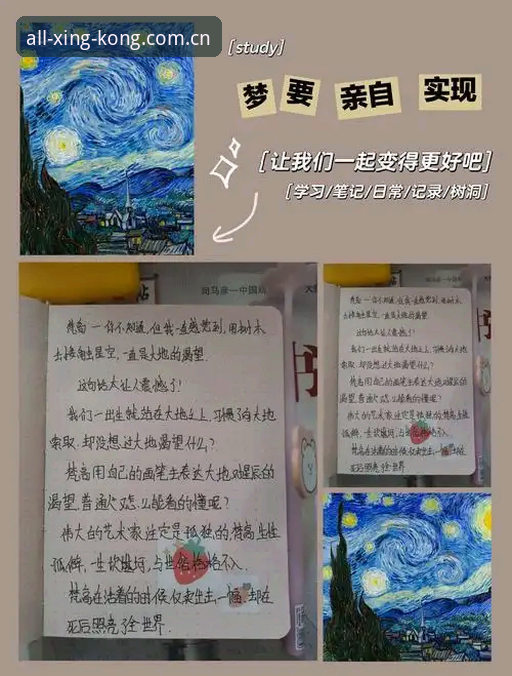 all-xing-kong.com.cn
[study]
梦 要 亲自 实现
[让我们一起变得更好吧]
[学习/笔记/日常/记录/树洞]
梵高一你不知道,但我一直感觉到,用树木
去接触星空,一直是大地的渴望.
这句话太让人震撼了!
我们一出生就站在大地之上,习惯了向大地
索取,却没想过大地渴望什么?
梵高用自己的画笔去表达大地对星辰的
渴望,普通人又怎么能看的懂呢?
伟大的艺术家注定是孤独的,梵高生性
孤僻,一世软禁,与世俗格格不入.
梵高在活着的时候仅卖出去一幅,却在
死后照亮了全世界.
梵高一你不知道,但我一直感觉到,用树木
去接触星空,一直是大地的渴望
这句话太让人震撼了!
我们一出生就站在大地之上,习惯了向大地
索取,却没想过大地渴望什么?
梵高用自己的画笔去表达大地对星辰的
渴望,普通人又怎么能看的懂呢?
伟大的艺术家注定是孤独的,梵高生性
孤僻,与世俗格格不入.
梵高在活着的时候仅卖出去一幅,却在
死后照亮全世界